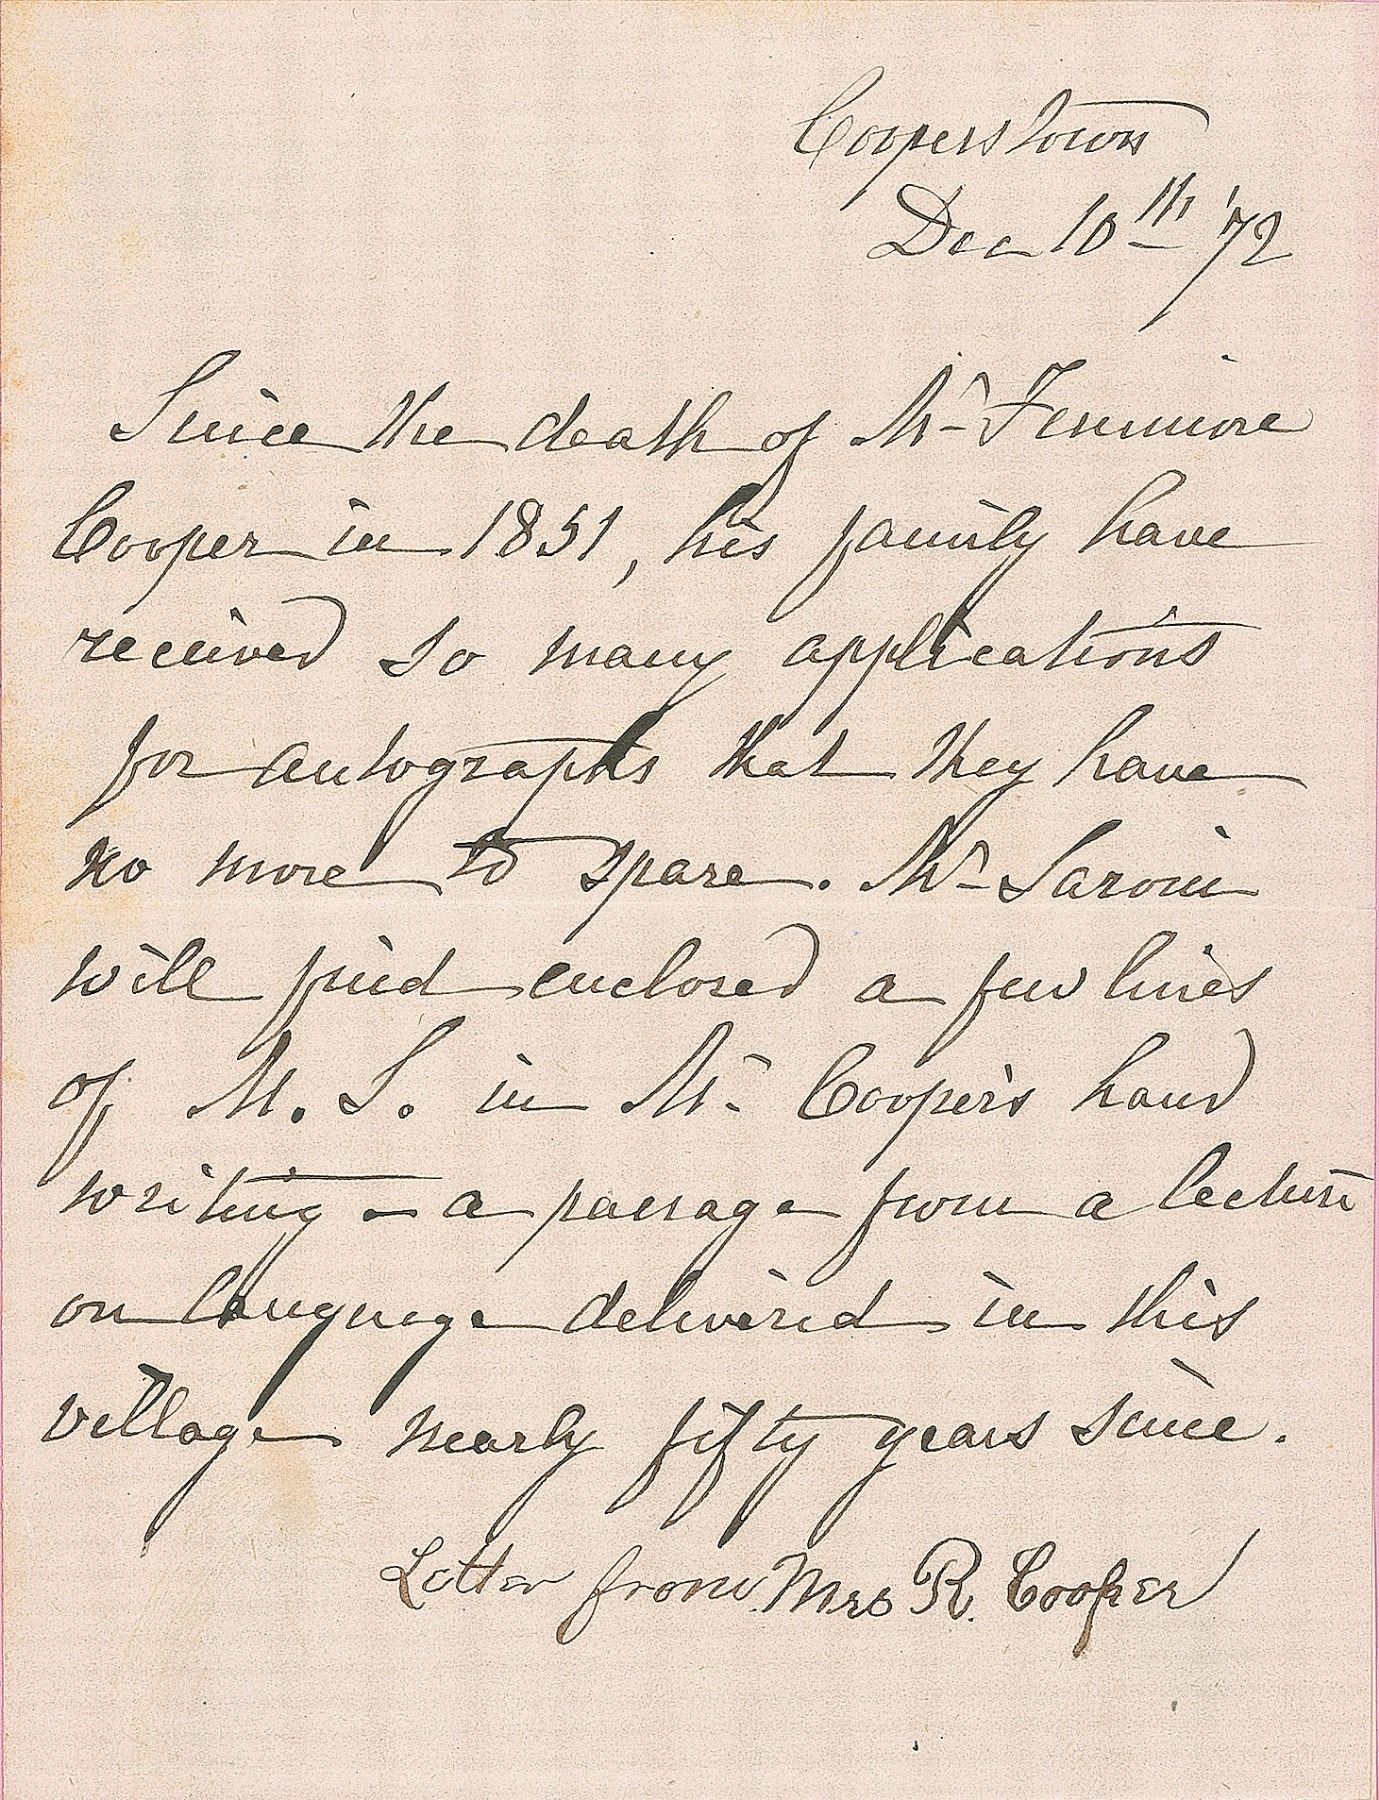 Cooperstown
Dec 10th '72
Since the death of Mr Fenimore
Cooper in 1851, his family have
received so many applications
for autographs that they have
no more to spare. Mr Saroni
will find enclosed a few lines
of M. S. in Mr Cooper's hand
writing – a passage from a lecture
on language delivered in this
village nearly fifty years since.
Letter from Mrs R. Cooper